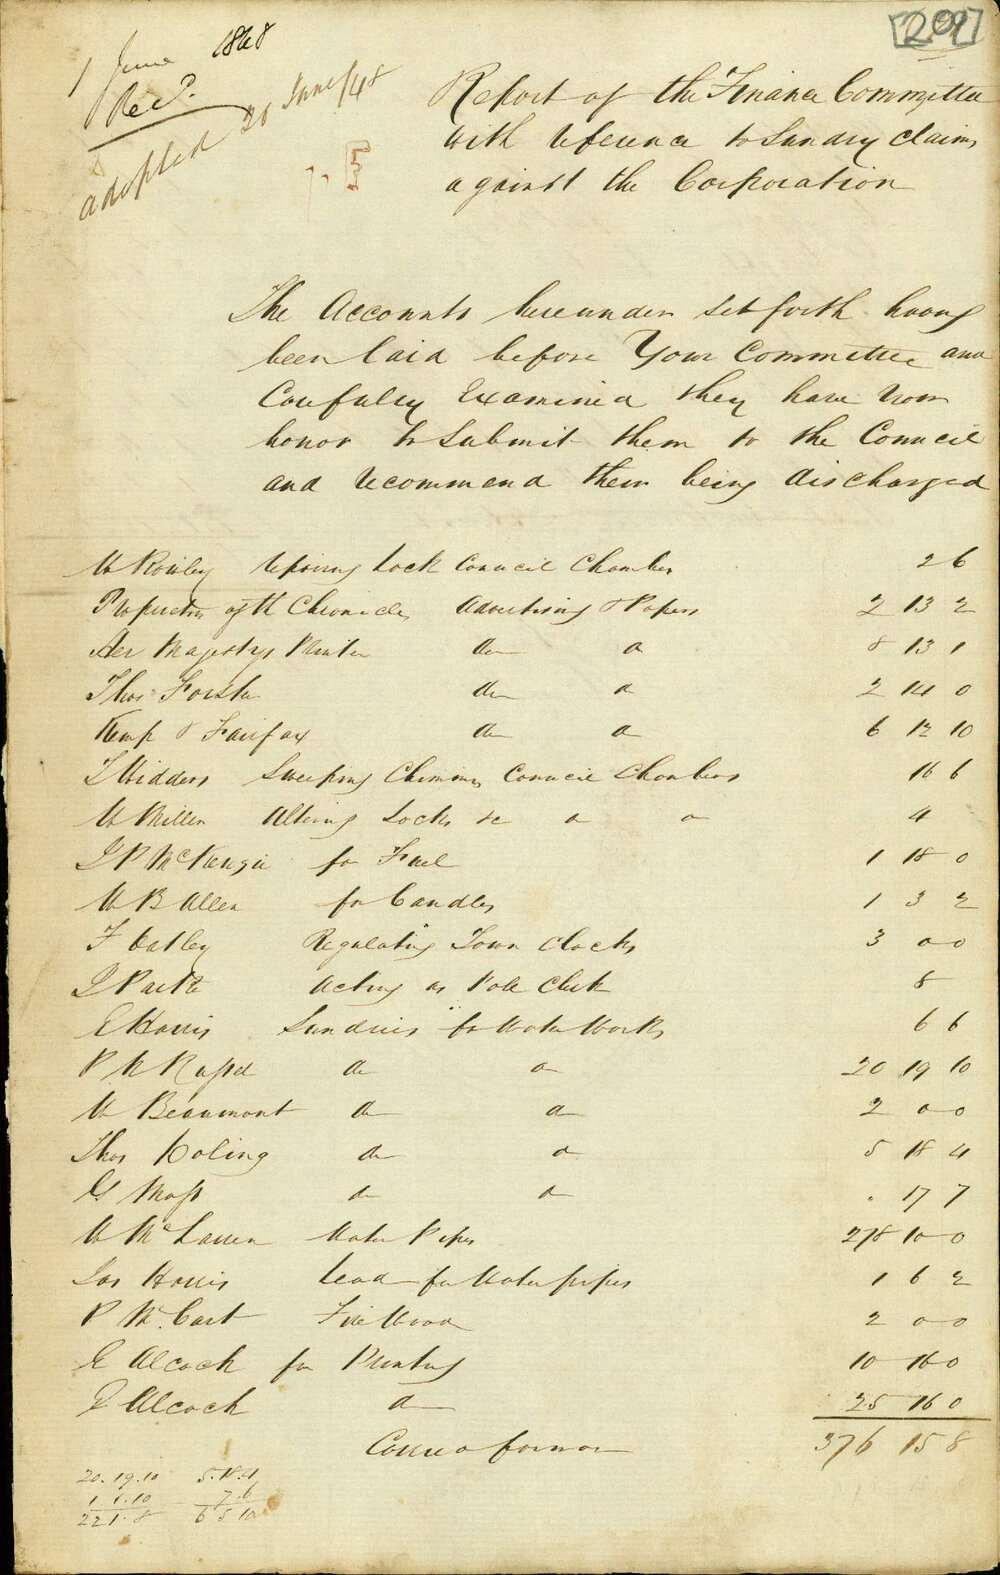 [209]
1 June 1848
Recd.
adopted 20 June/48
Report of the Finance Committee
with reference to Sundry claims
against the Corporation
The Accounts hereunder set forth having
been laid before Your Committee and
Carefully Examined they have now
honor to submit them to the Council
and recommend them being discharged
W Rowley repairing Lock Council Chamber 2 6
Proprietors of the Chronicle Advertising & Papers 2 13 2
Her Majestys Printer do do 8 13 1
Thos Forster do do 2 14 0
Kemp & Fairfax do do 6 12 10
Sweeping Chimneys Council Chambers 16 6
W Miller Altering Locks &c do do 4
J P McKenzie for Fuel 1 18 0
W B Allen for Candles 1 3 2
F Oatley Regulating Town Clocks 3 0 0
Acting as Poll Clerk 8
E Harris Sundries for Water Works 6 6
P N Russel do do 20 19 10
W Beaumont do do 2 0 0
Thos Holing do do 5 18 4
G Moss do do . 17 7
W McLaren Water Pipes 278 10 0
Jas Harris Lead for Water pipes 1 6 2
P McCart Fire Wood 2 0 0
E Alcock for Printing 10 16 0
E Alcock do 25 16 0
Carried forward 376 15 8
20.19.10 5.18.4
1.1.10 7.6
22 1.8 6 5 10